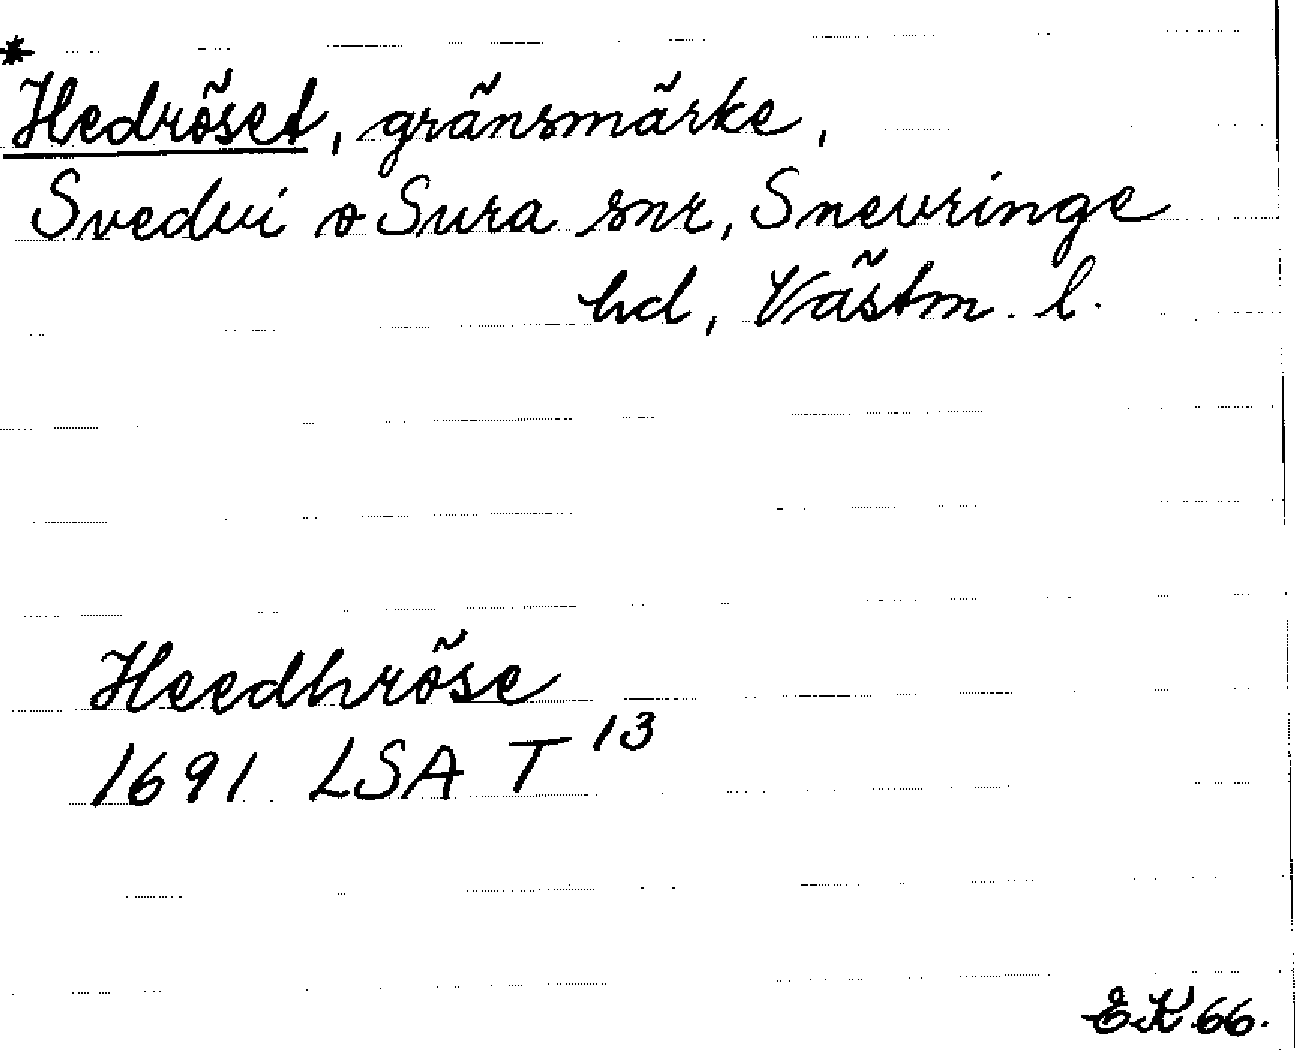 *
Hedröset, gränsmärke,
Svedvi o Sura snr, Snevringe
hd, Västm. l.
Heedhröse
1691 LSA T 13
EK 66.